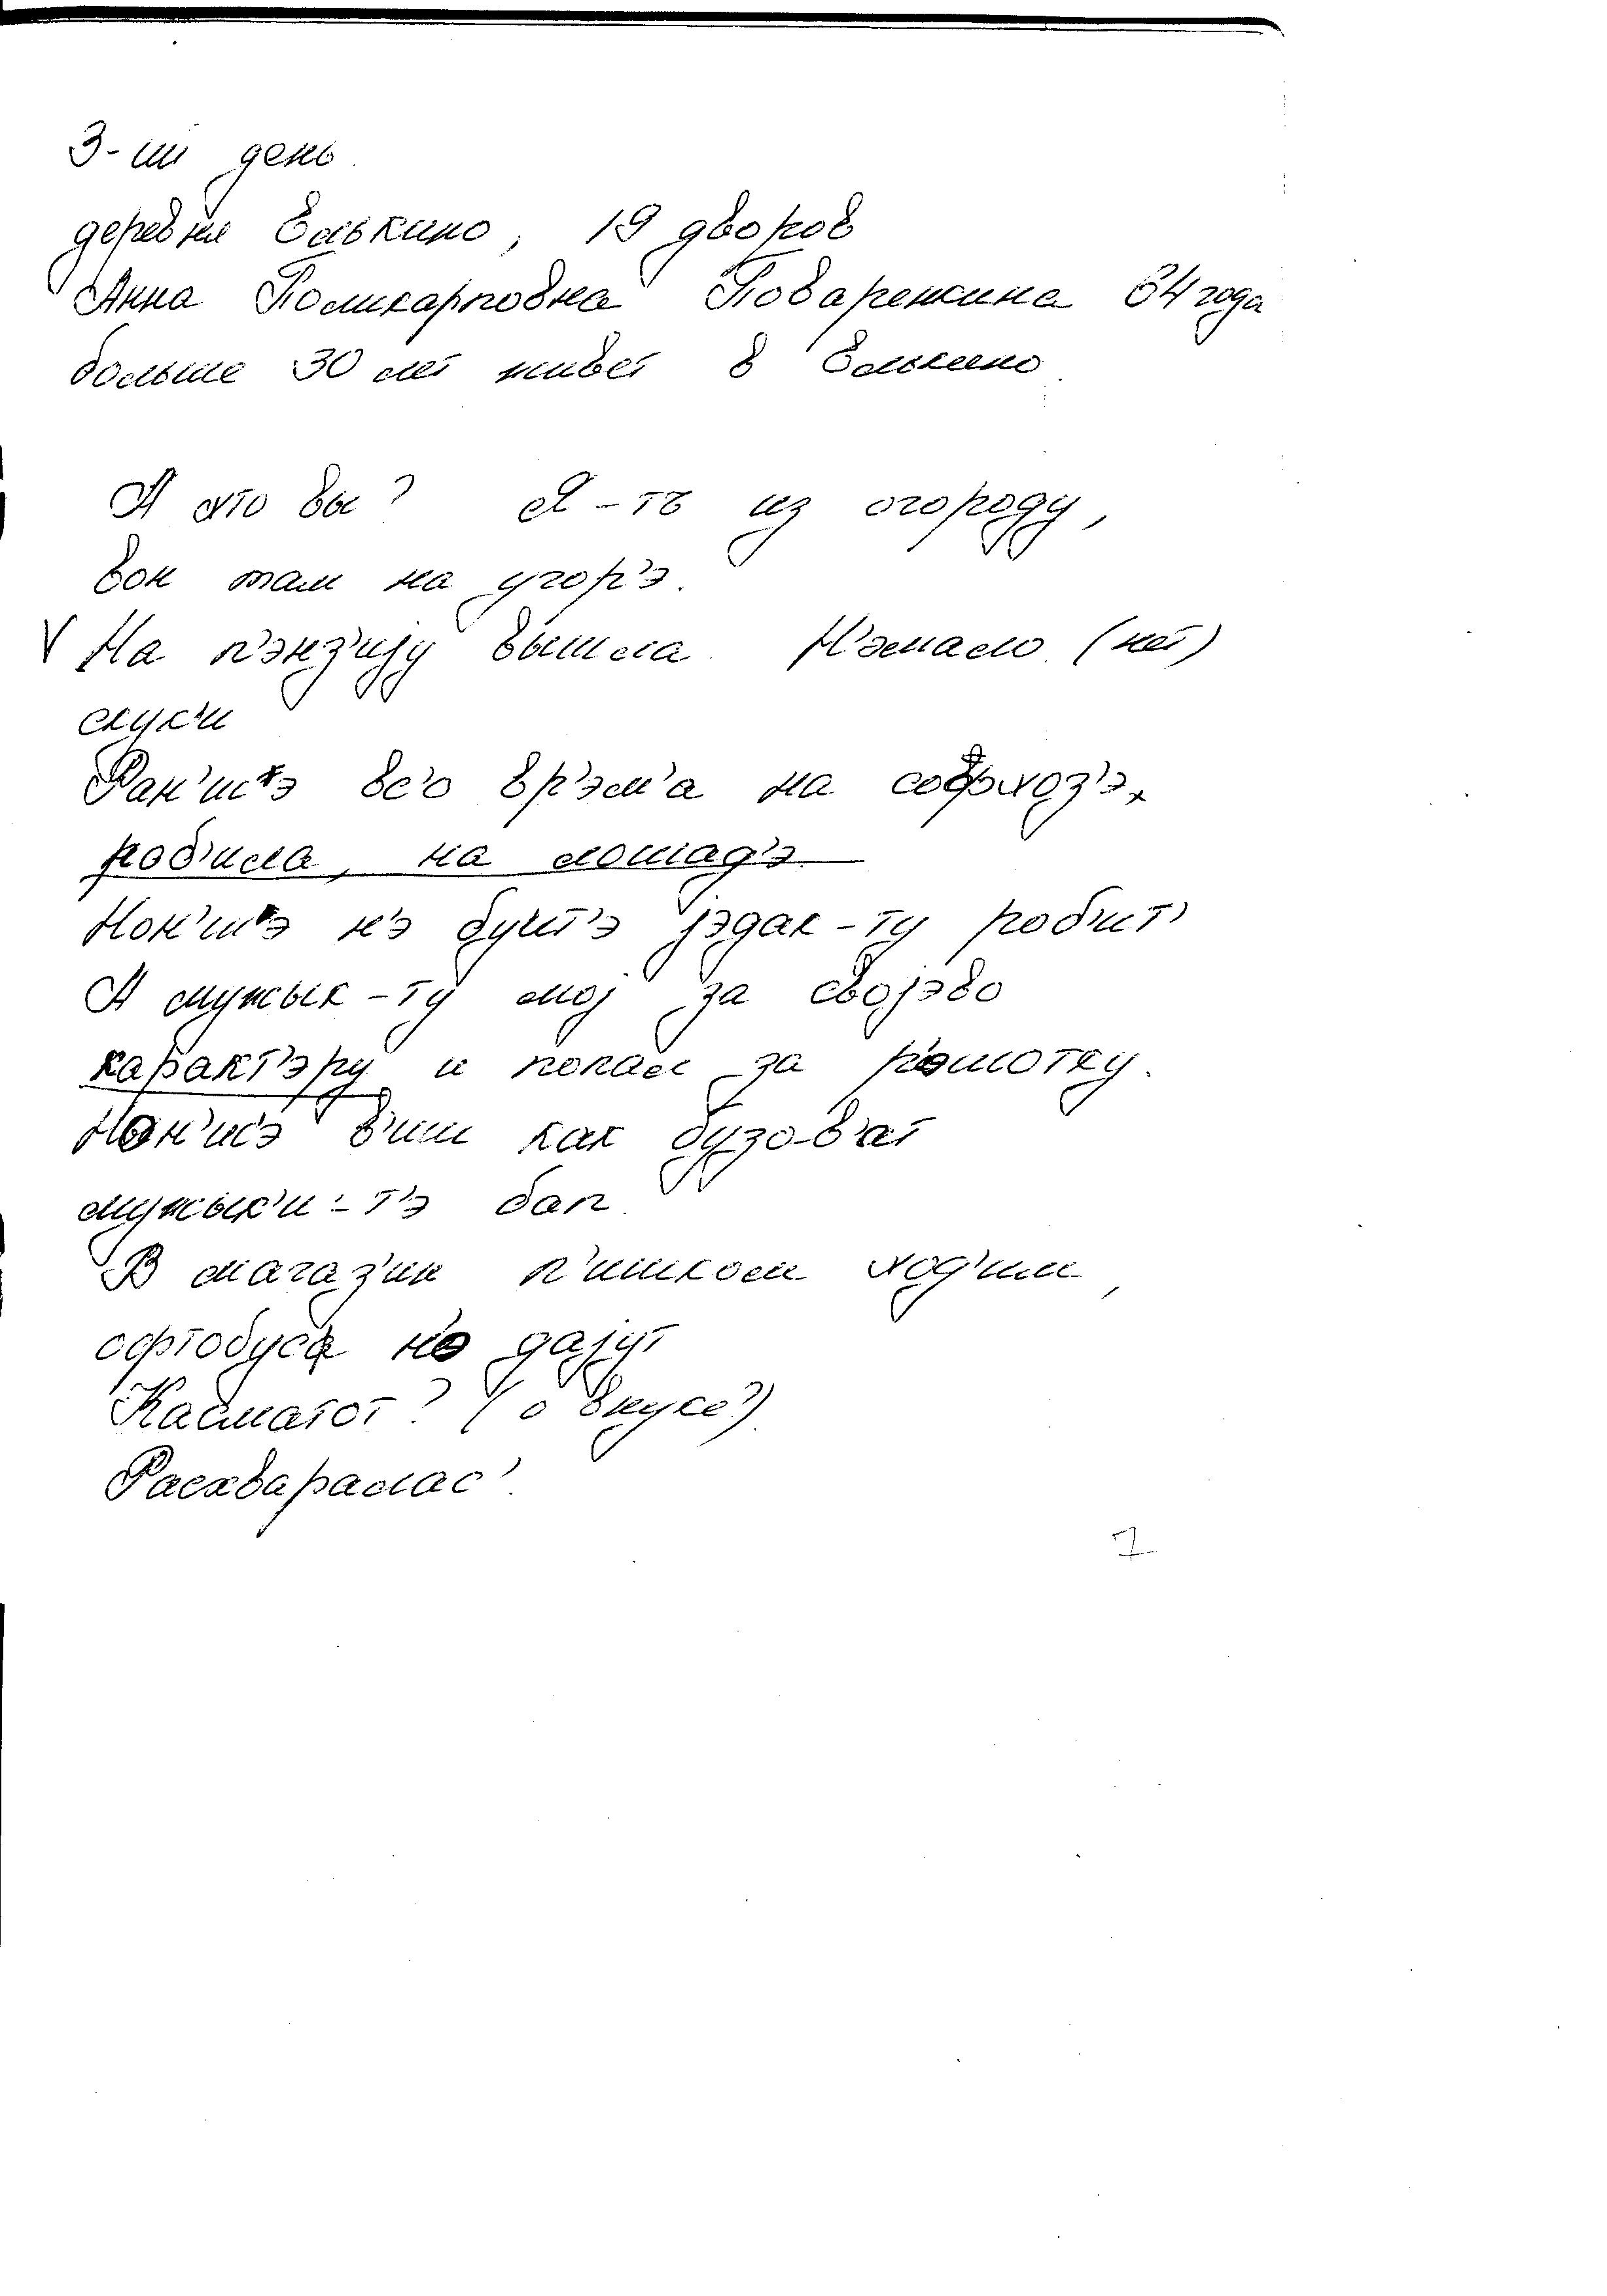 3-ий день
деревня Елькино, 19 дворов
Анна Поликарповна Поварежкина 64 года
больше 30 лет живет в Елькино
А что вы? Я-тъ из огороду,
вон там на угор'э.
V На п'энз'иjу вышла. Н'эмало (нет)
скук'и
Ран'шэ вс'о вр'эм'а на софхоз'э
роб'ила, на лошад'э
Нон'шэ н'э буит'э jэдак-ту робит'
А мужык-ту моj за своjэво
карактэру и попал за р'ошотку.
Нон'исэ в'иш как бузо-в'ат
мужык'и-т'э бап.
В магаз'ин п'ишком ход'им,
офтобуса н'э даjут
Касматот? (о вкусе?)
Расхваралас'.
7